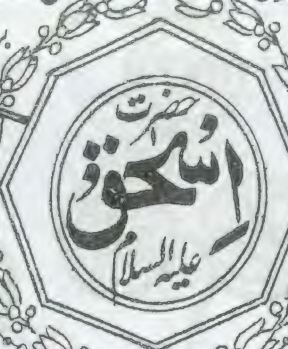 حضرت
اسحٰق
علیہ السلام